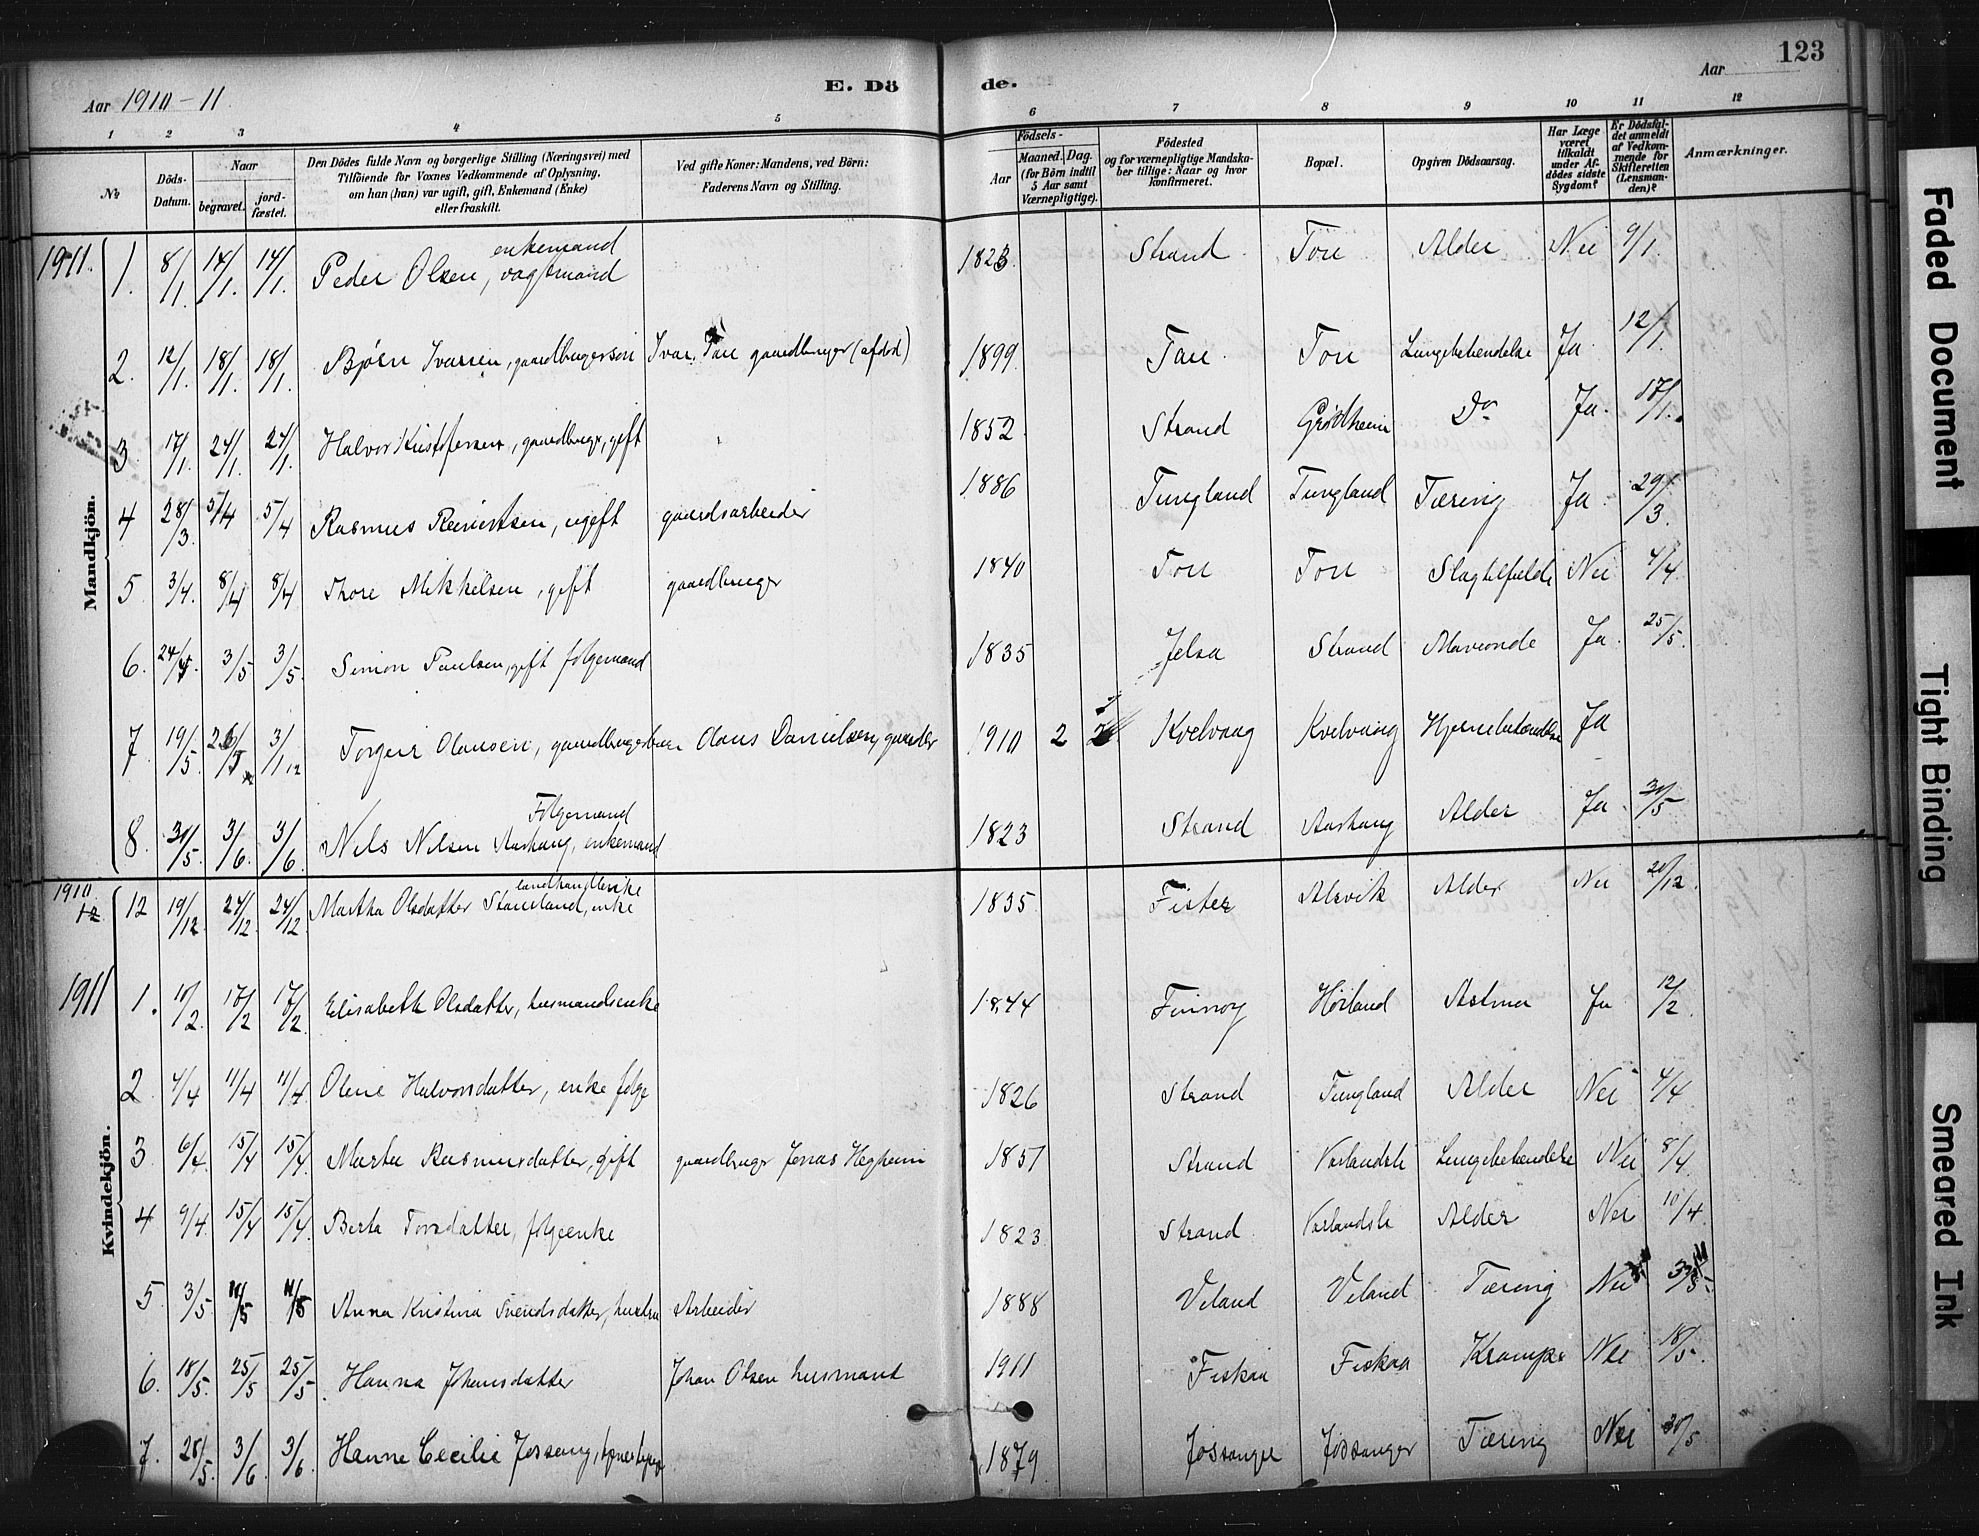 Aar 1910-11.
E. Dö de.
Aar
123
1 2 3 4 5 6 7 8 9 10 11 12
№
Döds-Datum.
Naar
begravet. jord-fæstet.
Den Dödes fulde Navn og borgerlige Stilling (Næringsvei) med
Tilföiende for Voxnes Vedkommende af Oplysning,
om han (hun) var ugift, gift, Enkemand (Enke)
eller fraskilt.
Ved gifte Koner: Mandens, ved Börn:
Faderens Navn og Stilling.
Födsels-
Aar
Maaned. Dag.
(for Börn indtil
5 Aar samt
Værnepligtige).
Födested
og for værnepligtige Mandska-
ber tillige: Naar og hvor
konfirmeret.
Bopæl.
Opgiven Dödsaarsag.
Har Læge
været
tilkaldt
under Af-
dödes sidste
Sygdom?
Er Dödsfal-
det anmeldt
af Vedkom-
mende for
Skifteretten
(Lensman-
den)?
Anmærkninger.
Mandkjön.
1911. 1. 8/1 14/1. 14/1. Peder Olsen, enkemand 1823. Strand Tou Alder Nei 9/1.
2. 12/1. 18/1. 18/1. Bjørn Ivarsen, gaardbrugersøn Ivar Tou gaardbruger (afdød) 1899. Tau Tou Lungebetændelse Ja 12/1.
3 17/1. 24/1. 24/1. Halvor Kristofersen, gaardbruger, gift 1852. Strand Grødtheim Do Ja. 17/1.
4 28/3. 5/4 5/4 Rasmus Reiertsen, ugift gaardsarbeider 1886 Tungland Tungland Tæring Ja 29/3.
5. 3/4. 8/4 8/4 Thore Mikkelsen, gift gaardbruger 1840 Tou Tou Slagtilfælde Nei 4/4
6. 3/5 3/5. Simon Paulsen, gift følgemand 1835 Jelsa Strand Mavonde Ja 25/5.
7. 19/5. 3/1 12 Torger Olausen, Olaus Danielsen, 1910 2 Kvelvaag Kvelvaag Hjernebetændelse Ja
8. 30/5. 3/6. 3/6 Nils Nilsen Følgemand enkemand 1823 Strand Alder Ja 30/5
Kvindekjön.
1910 12 12 19/12. 24/12. 24/12 Martha Olsdatter enke 1835 Fister Alsvik Alder Nei 20/12.
1911 1. 10/2. 17/2 17/2. Elisabeth Olsdatter, husmandsenke 1844 Finnøy Hørland Astma Ja 12/2.
2. 4/4 11/4 11/4. Oline Halvorsdatter, enke følge 1826 Strand Tungland Alder Nei 4/4
3. 6/4. 15/4 15/4. Marta Rasmusdatter, gift gaardbruger Jonas Hegheim 1851 Strand Vorlandsli Lungebetændelse Nei 8/4.
4 9/4. 15/4 15/4. Berta Torsdatter, følgeenke 1823. Strand Vorlandsli Alder Nei 10/4.
5. 3/5. 11/5 11/5 Anna Kristina Svendsdatter, hustru Arbeider 1888 Veland Veland Tæring Nei
6. 18/5. 25/5 25/5. Hanna Johansdatter Johan Olsen husmand 1911 Fiskaa Fiskaa Krampe Nei 18/5.
7. 28/5. 3/6 3/6. Hanne Cecilie Jøssang, 1879 Jøssanger Jøssanger Tæring Nei 30/5.
Faded Document
Tight Binding
Smeared Ink